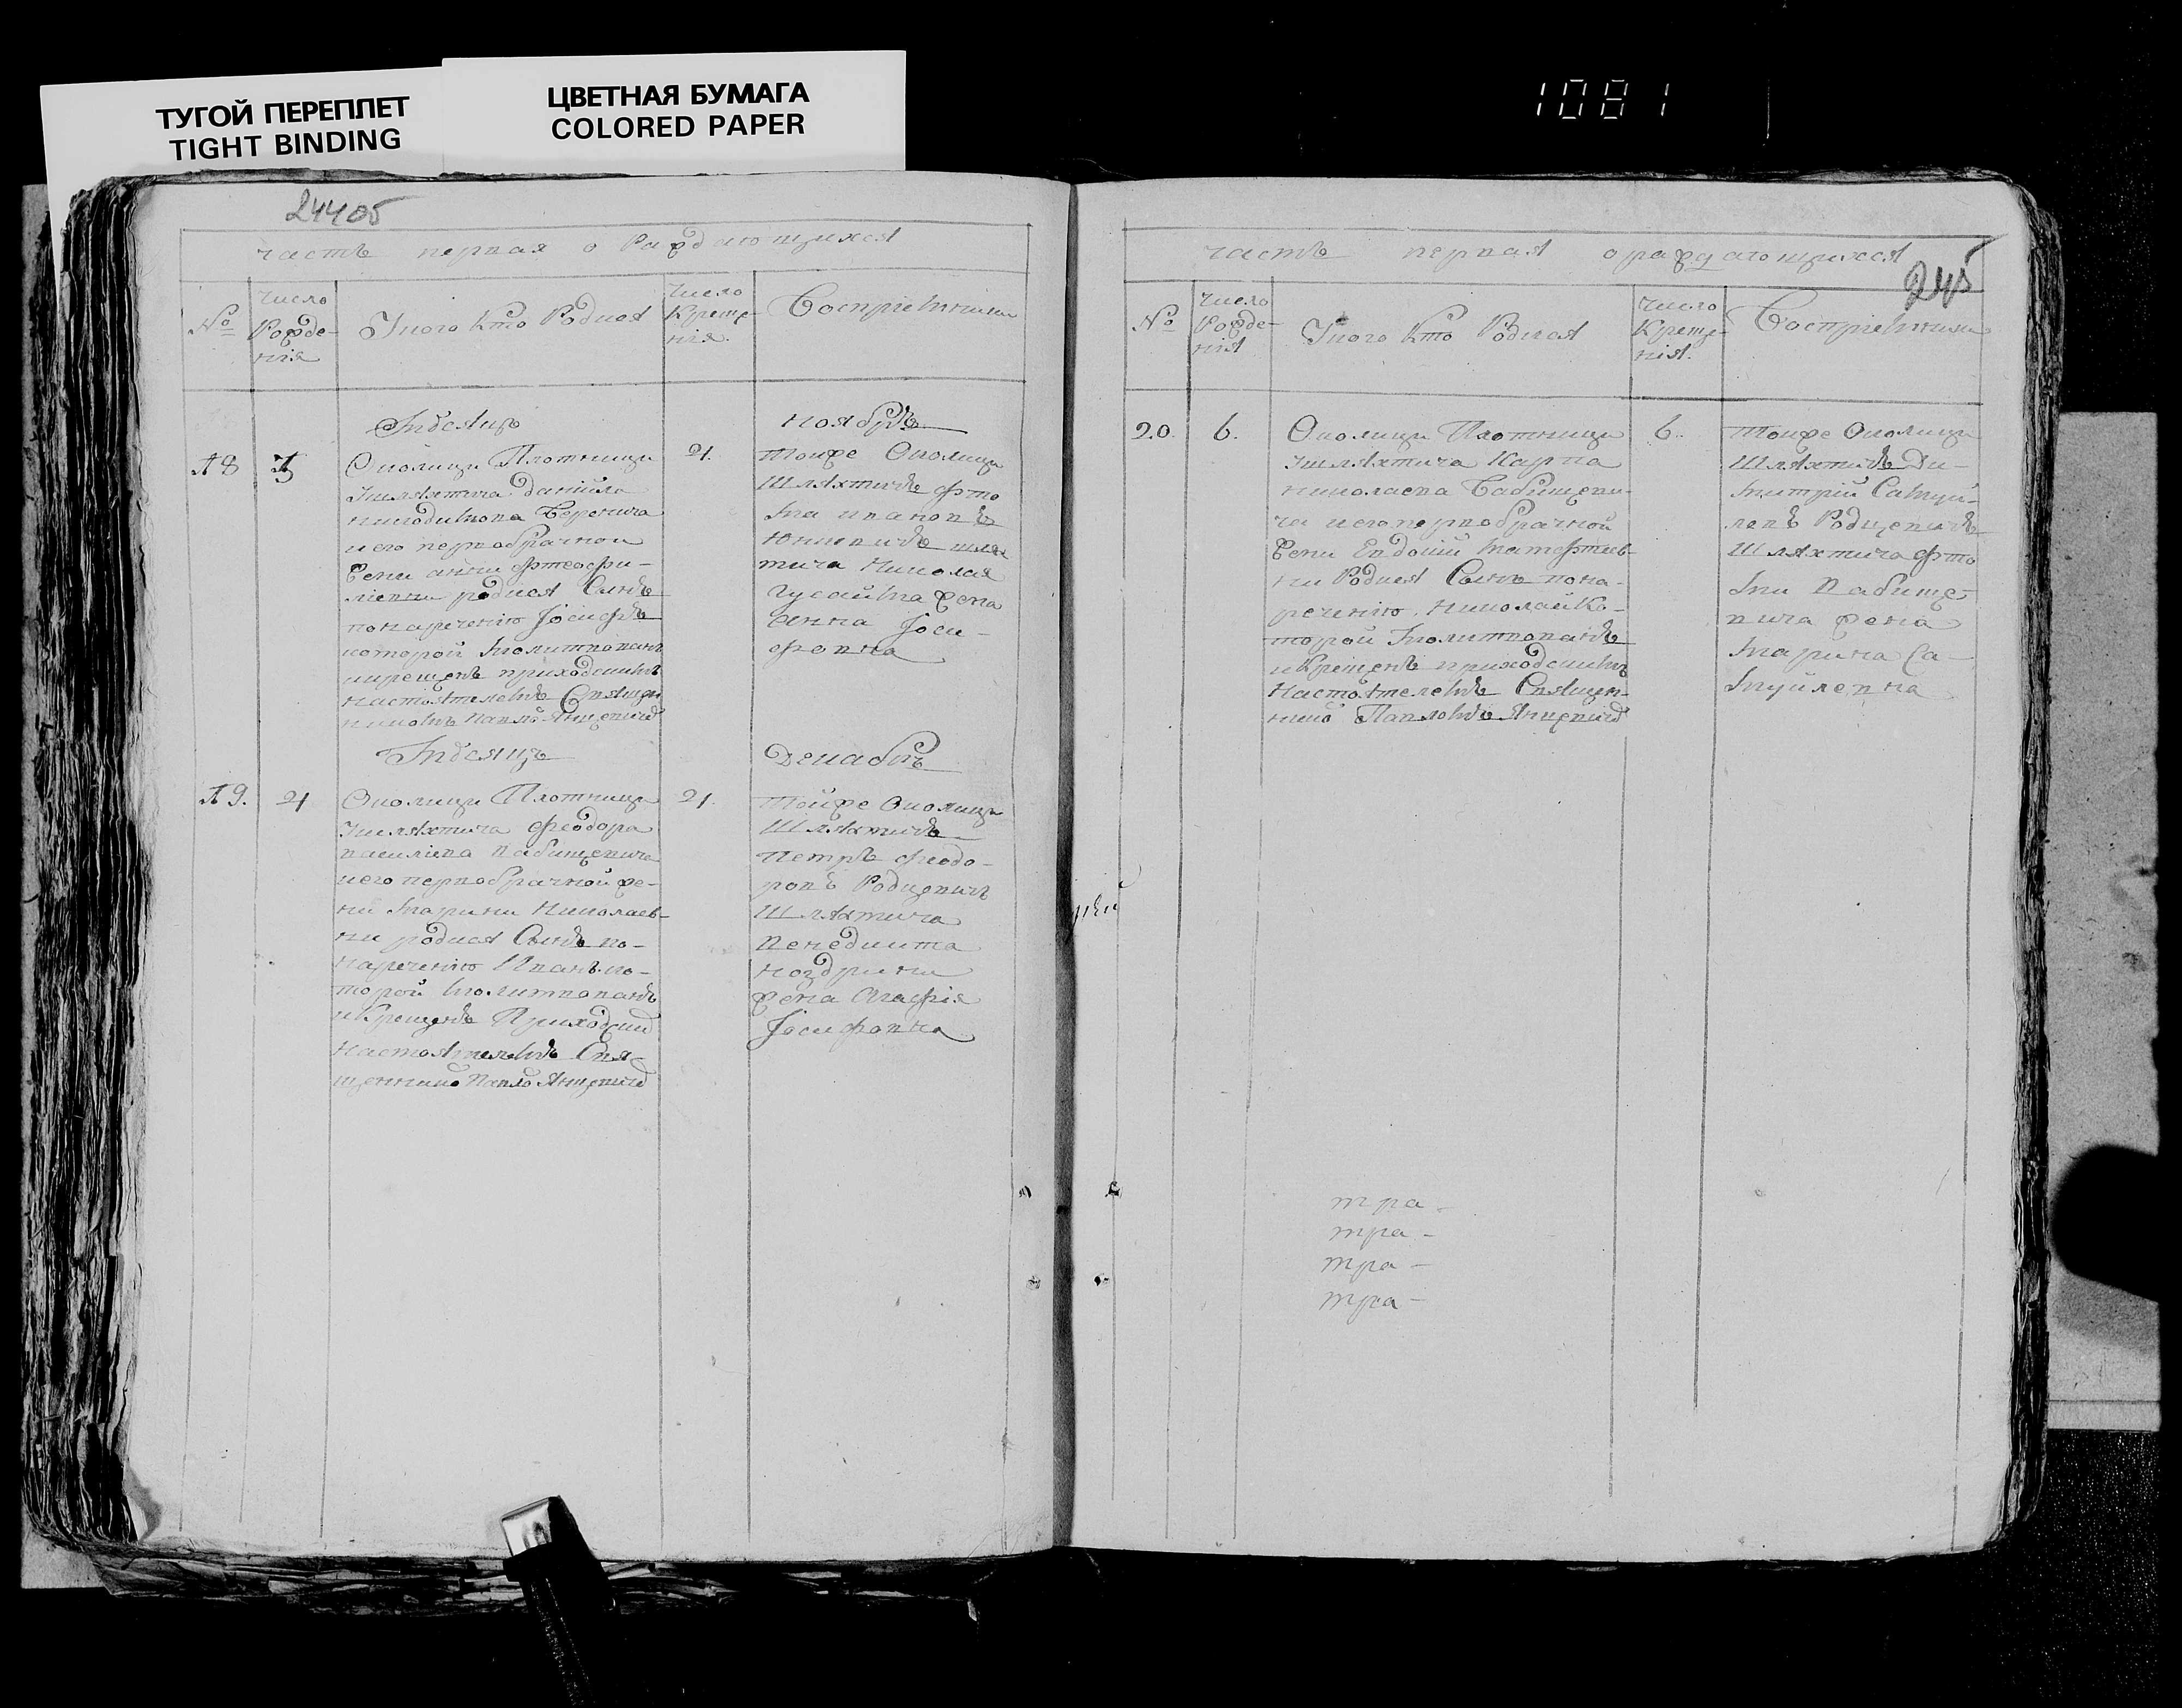 ТУГОЙ ПЕРЕПЛЕТ
TIGHT BINDING
ЦВЕТНАЯ БУМАГА
COLORED PAPER
1081
244об
часть первая о Раждающихся
№
число Рожде-
нія
У кого кто Родился
число Креще-
нія
Восприемники
Мѣсяцъ
ноябрь
18
Околицы Плотницы
Ушляхтича Даніила
Никодимова Веренича
и его первобрачной
Жены анны
родился Сынъ
по нареченію Іосифъ
которой молитвованъ
и крещенъ приходскимъ
настоятелемъ Священ
никомъ Павло Янцевичъ
21.
Тойже Околицы
Шляхтичъ
ивановъ
шлях
тича Николая
жена
анна Іоси-
фовна
Мѣсяцъ
Декабрь
19.
21
Околицы Плотницы
Ушляхтича Феодора
василіева вабищевича
и его первобрачной же-
ни Марини Николаев-
ни родился Сынъ по-
нареченію Иванъ ко-
торой молитвованъ
и Крещенъ Приходский
настоятелемъ Свя-
щенникомъ Павло Янцевичъ
21.
Тойже Околицы
Шляхтичъ
Петръ Феодо-
ровъ Родцевичъ
Шляхтича
венедикта
ноздрини
жена Агафія
Іосифовна
часть первая о раждающихся
245
№
число
Рожде-
нія
У кого кто Родился
число
Креще-
нія.
Восприемники
20.
6.
Околицы Плотницы
Ушляхтича Карпа
николаева Вабищеви-
ча и его первобрачной
Жени Евдокіи
ни Родился Сынъ по на-
реченію Николай Ко-
торой молитвованъ
и Крещенъ приходскимъ
Настоятелемъ Священ-
нико Павломъ Янцевичъ
6.
Тойже Околицы
Шляхтичъ Ди-
митрій Самуй-
ловъ Родцевичъ
Шляхтича Фто
ми Вабище-
вича жена
Марина Са-
муйловна
тра-
тра-
тра-
тра-